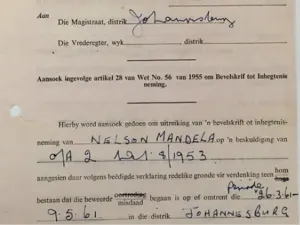 Aan
Die Magistraat, distrik Johannesburg
Die Vrederegter, wyk distrik
Aansoek ingevolge artikel 28 van Wet No. 56 van 1955 om Bevelskrif tot Inhegtenis
neming.
Hierby word aansoek gedoen om uitreiking van 'n bevelskrif tot inhegtenis-
neming van NELSON MANDELA op 'n beskuldiging van
O/A 2 1 8/1953
aangesien daar volgens beëdigde verklaring redelike gronde vir verdenking teen hom
haar
bestaan dat die beweerde oortreding begaan is op of omtrent die Periode 26.3.61-
misdaad
9.5.61 in die distrik JOHANNESBURG